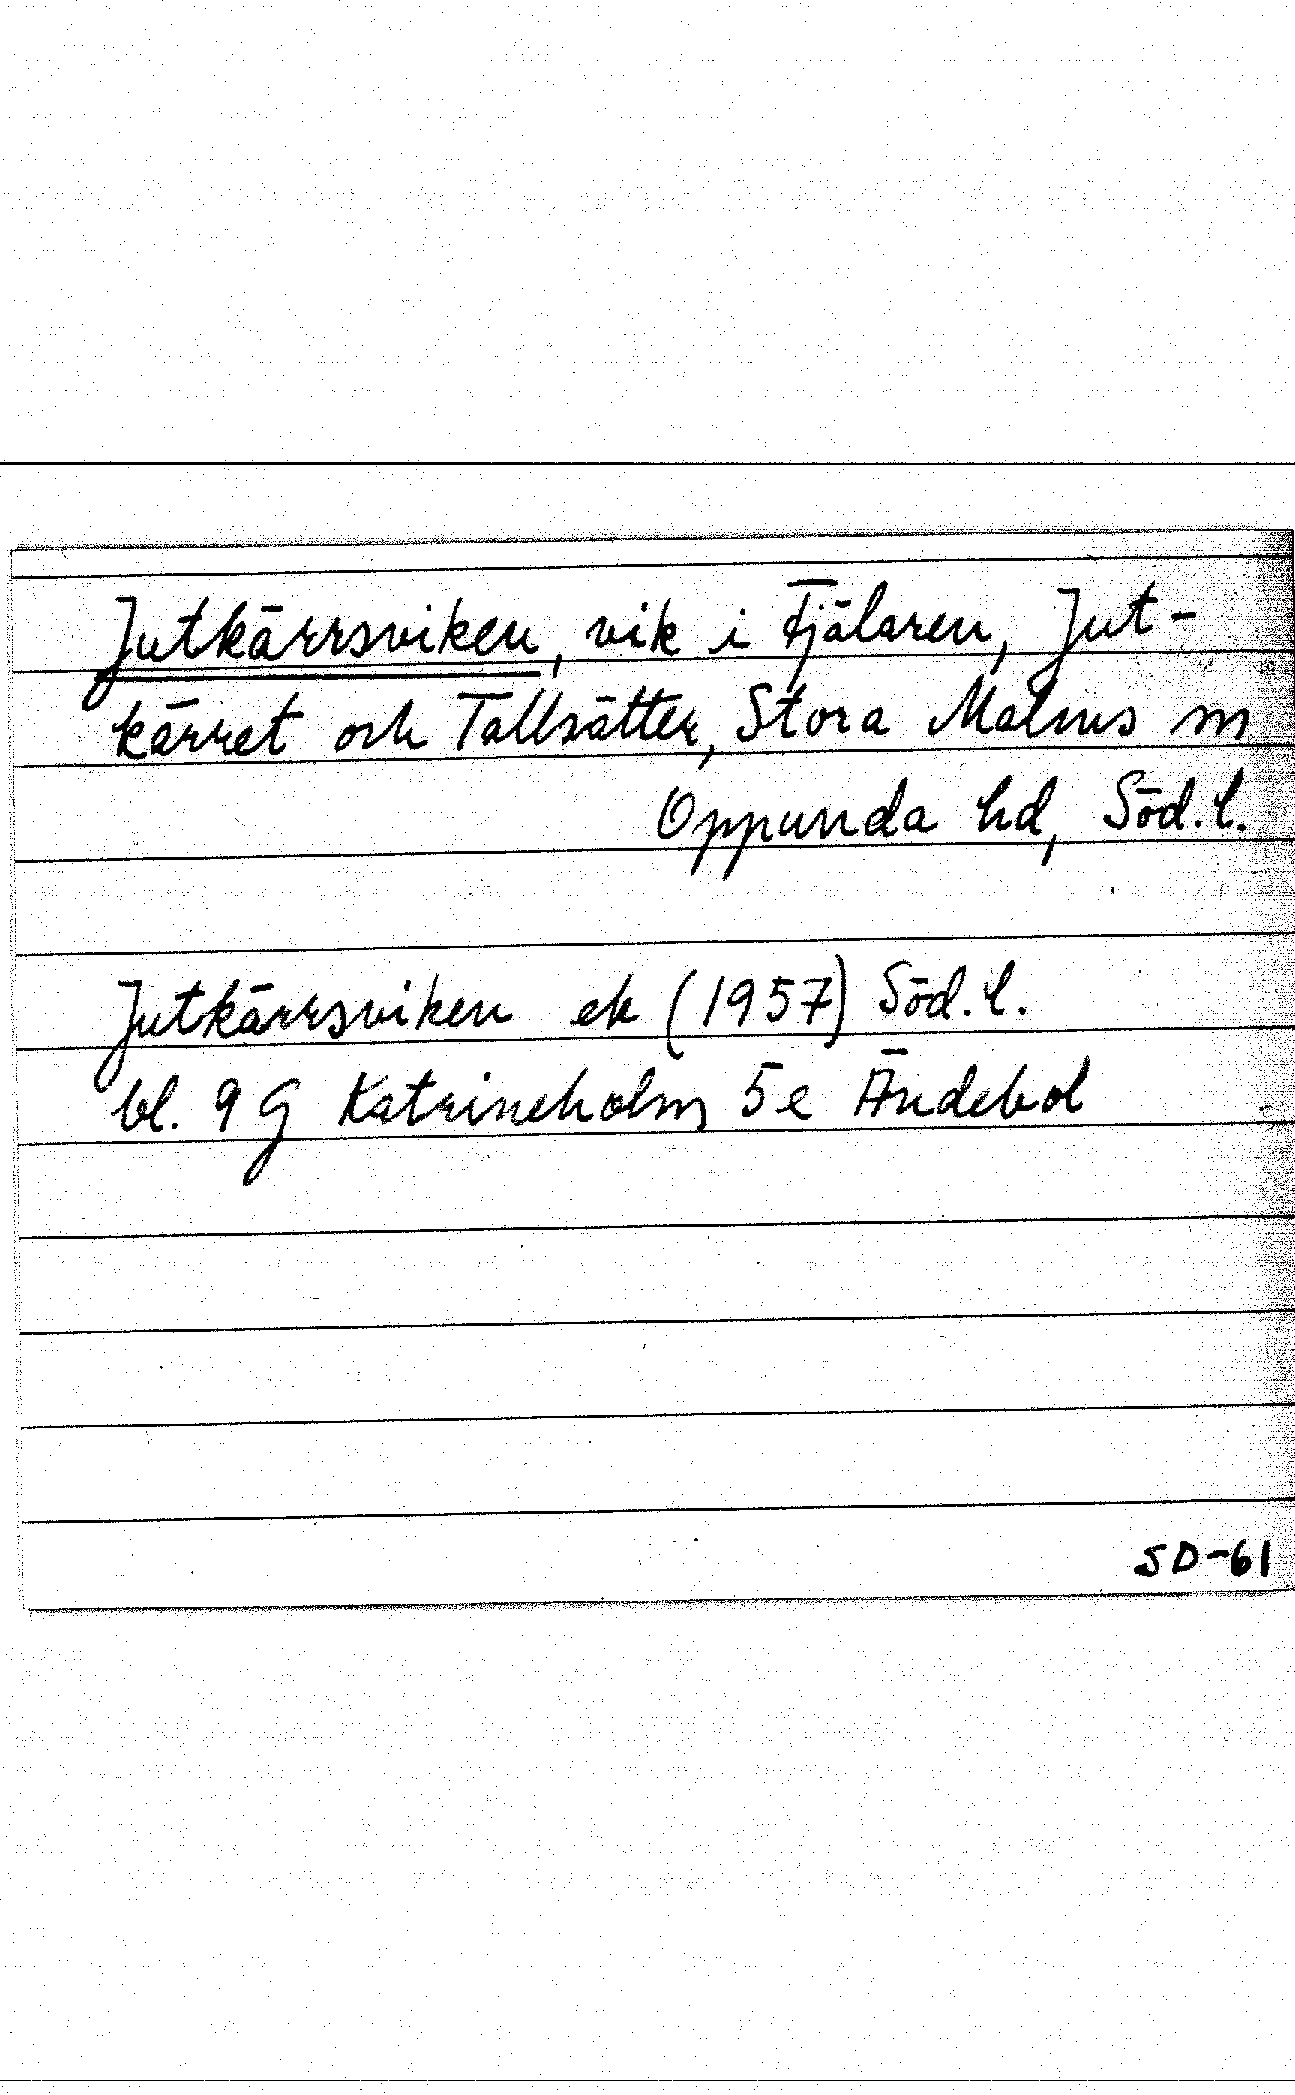 Jutkärrsviken, vik i Fjälaren, Jut-
kärret och Tallsätter, Stora Malms sn
Oppunda hd, Söd. l.
Jutkärrsviken ek (1957) Söd. l.
bl. 9 G Katrineholm 5e Ändebol
SD-61